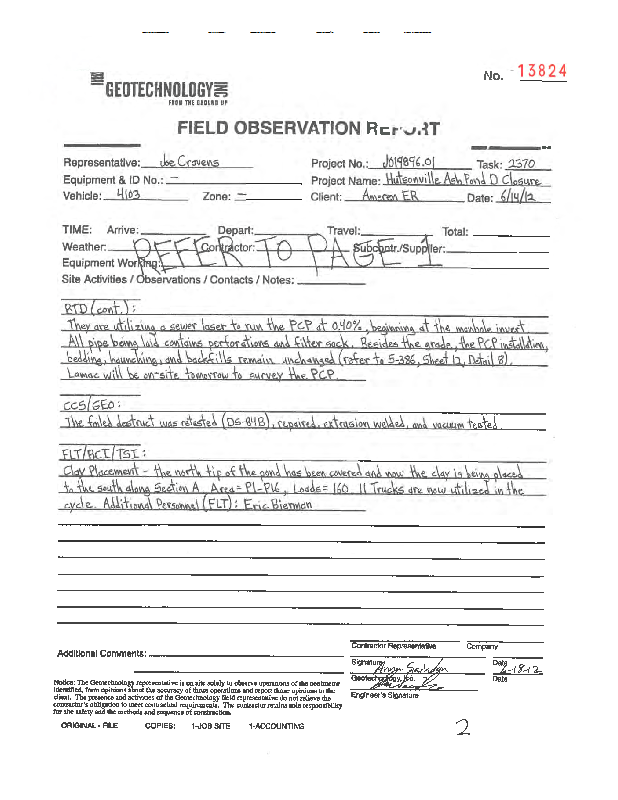 No. 13824
GEOTECHNOLOGY
FROM THE GROUND UP
FIELD OBSERVATION REPORT
Representative: Joe Cravens Project No.: J019896.01 Task: 2370
Equipment & ID No.: — Project Name: Hutsonville Ash Pond D Closure
Vehicle: 4103 Zone: — Client: Ameren ER Date: 6/14/12
TIME: Arrive: Depart: Travel: Total:
Weather: Contractor: Subcontr./Supplier:
REFER TO PAGE 1
Equipment Working:
Site Activities / Observations / Contacts / Notes:
BTD (cont.):
They are utilizing a sewer laser to run the PCP at 0.40%, beginning at the manhole invert.
All pipe being laid contains perforations and filter sock. Besides the grade, the PCP installation,
bedding, haunching, and backfills remain unchanged (refer to S-396, Sheet 12, Detail 8).
Lamac will be on-site tomorrow to survey the PCP.
CCS/GEO:
The failed destruct was retested (DS-84B), repaired, extrusion welded, and vacuum tested.
FLT/BCI/TSI:
Clay Placement - the north tip of the pond has been covered and now the clay is being placed
to the south along Section A. Area = P1-P16, Loads = 160. 11 Trucks are now utilized in the
cycle. Additional Personnel (FLT): Eric Bierman
Additional Comments:
Contractor Representative Company
Signature Date 6-18-12
Geotechnology, Inc. Date
Engineer's Signature
Notice: The Geotechnology representative is on site solely to observe operations of the contractor
identified, form opinions about the accuracy of those operations and report those opinions to the
client. The presence and activities of the Geotechnology field representative do not relieve the
contractor's obligation to meet contractual requirements. The contractor retains sole responsibility
for site safety and the methods and sequence of construction.
ORIGINAL - FILE COPIES: 1-JOB SITE 1-ACCOUNTING
2